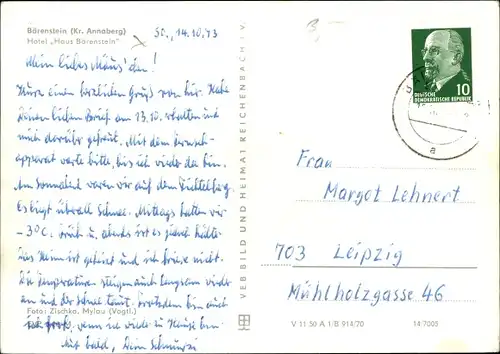 Bärenstein (Kr. Annaberg)
Hotel „Haus Bärenstein"
So., 14.10.73
Mein liebes Mäus'chen!
Kurz einen herzlichen Gruß von hier. Habe
Deinen lieben Brief am 13.10. erhalten und
mich darüber gefreut. Mit dem Fernseh-
apparat warte bitte, bis ich wieder da bin.
Am Sonnabend waren wir auf dem Fichtelberg.
Es liegt überall Schnee. Mittags hatten wir
-3°C. Früh u. abends ist es jedoch kälter.
Das Heim ist geheizt und ich friere nicht.
Die Temperaturen steigen auch langsam wieder
an und der Schnee taut. Trotzdem bin auch
Foto: Zischka, Mylau (Vogtl.)
ich froh, wenn ich wieder zu Hause bin.
Bis bald, Dein
VEB BILD UND HEIMAT REICHENBACH I. V.
DEUTSCHE
DEMOKRATISCHE REPUBLIK
10
a
Frau
Margot Lehnert
703 Leipzig
Mühlholzgasse 46
V 11 50 A 1/B 914/70
14-7005